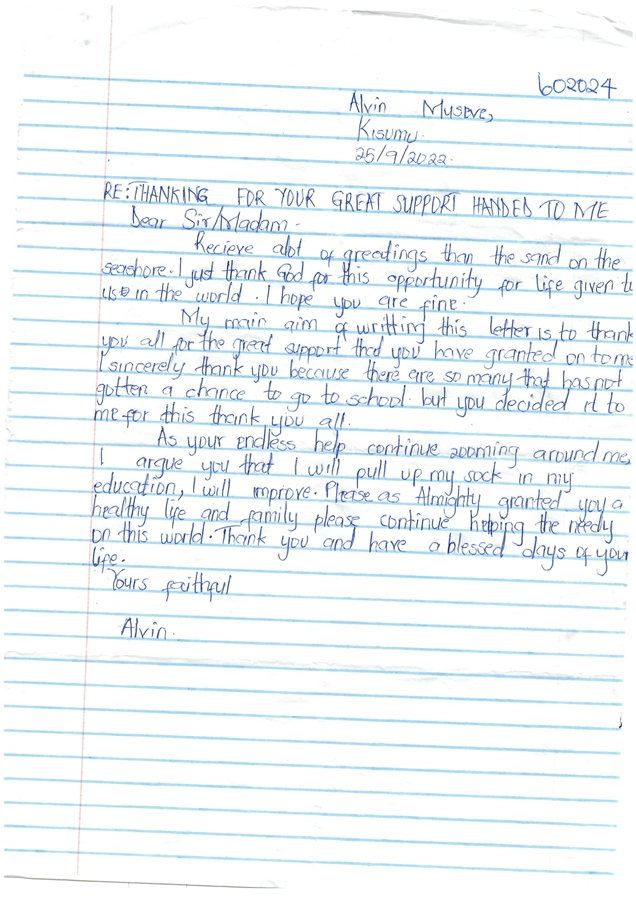 602024
Alvin Museve,
Kisumu.
25/9/2022.
RE: THANKING FOR YOUR GREAT SUPPORT HANDED TO ME
Dear Sir/Madam.
Recieve alot of greedings than the sand on the
seashore. I just thank God for this opportunity for life given to
us in the world. I hope you are fine.
My main aim of writting this letter is to thank
you all for the great support that you have granted on to me
I sincerely thank you because there are so many that has not
gotten a chance to go to school. but you decided it to
me for this thank you all.
As your endless help continue zooming around me,
I argue you that I will pull up my sock in my
education, I will improve. Please as Almighty granted you a
healthy life and family please continue helping the needy
on this world. Thank you and have a blessed days of your
life.
Yours faithful
Alvin.